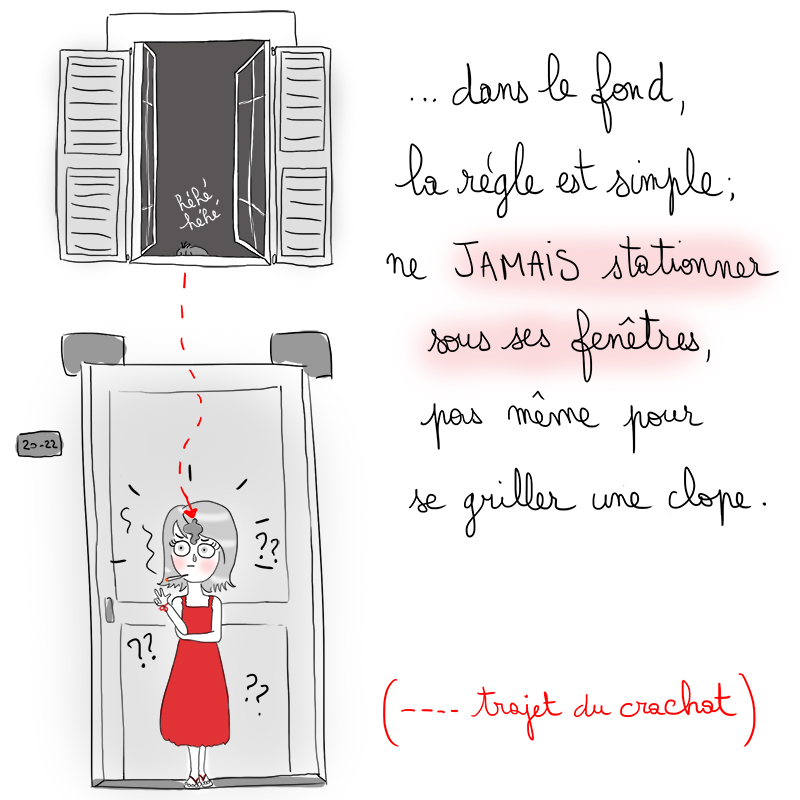 ... dans le fond,
la régle est simple;
ne JAMAIS stationner
sous ses fenêtres,
pas même pour
se griller une clope.
héhé
héhé
20-22
??
??
??
(---- trajet du crachat)